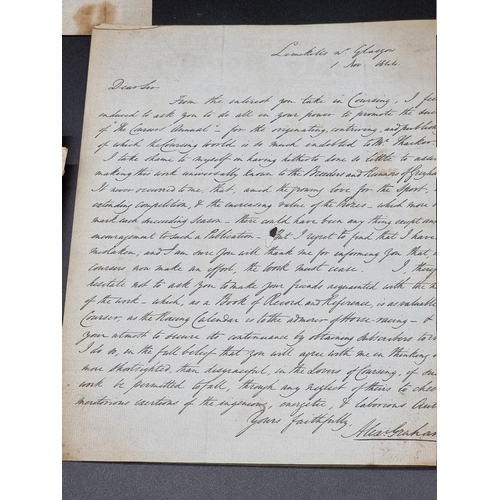 Limekilns nr. Glasgow
1 Nov. 1844.
Dear Sir
From the interest you take in Coursing, I feel
induced to ask you to do all in your power to promote the
of "the Coursers Annual" - for the originating, contriving, and
of which the Coursing World is so much indebted to Mr. Thacker.
I take shame to myself in having hitherto done so little to
making this work universally known to the Breeders and Runners of
It never occurred to me, that, amid the growing love for the Sport,
extending competition, & the increasing value of the Prizes - which more
mark each succeeding Season - there could have been any thing except
encouragement to such a Publication. But I regret to find that I have
mistaken, and I am sure you will thank me for informing you that
coursers now make an effort, the work must cease. I
hesitate not to ask you to make your friends acquainted with the
of the work - which, as a Book of Record and Reference, is as valuable
Courser, as the Racing Calendar is to the admirer of Horse-racing -
your utmost to secure its continuance by obtaining Subscribers to
I do so, in the full belief that you will agree with me in thinking
more shortsighted, than disgraceful, in the Lovers of Coursing, if
work be permitted to fall, through any neglect of theirs to
meritorious exertions of the ingenious, energetic, & laborious
Yours faithfully,
Alexr Graham